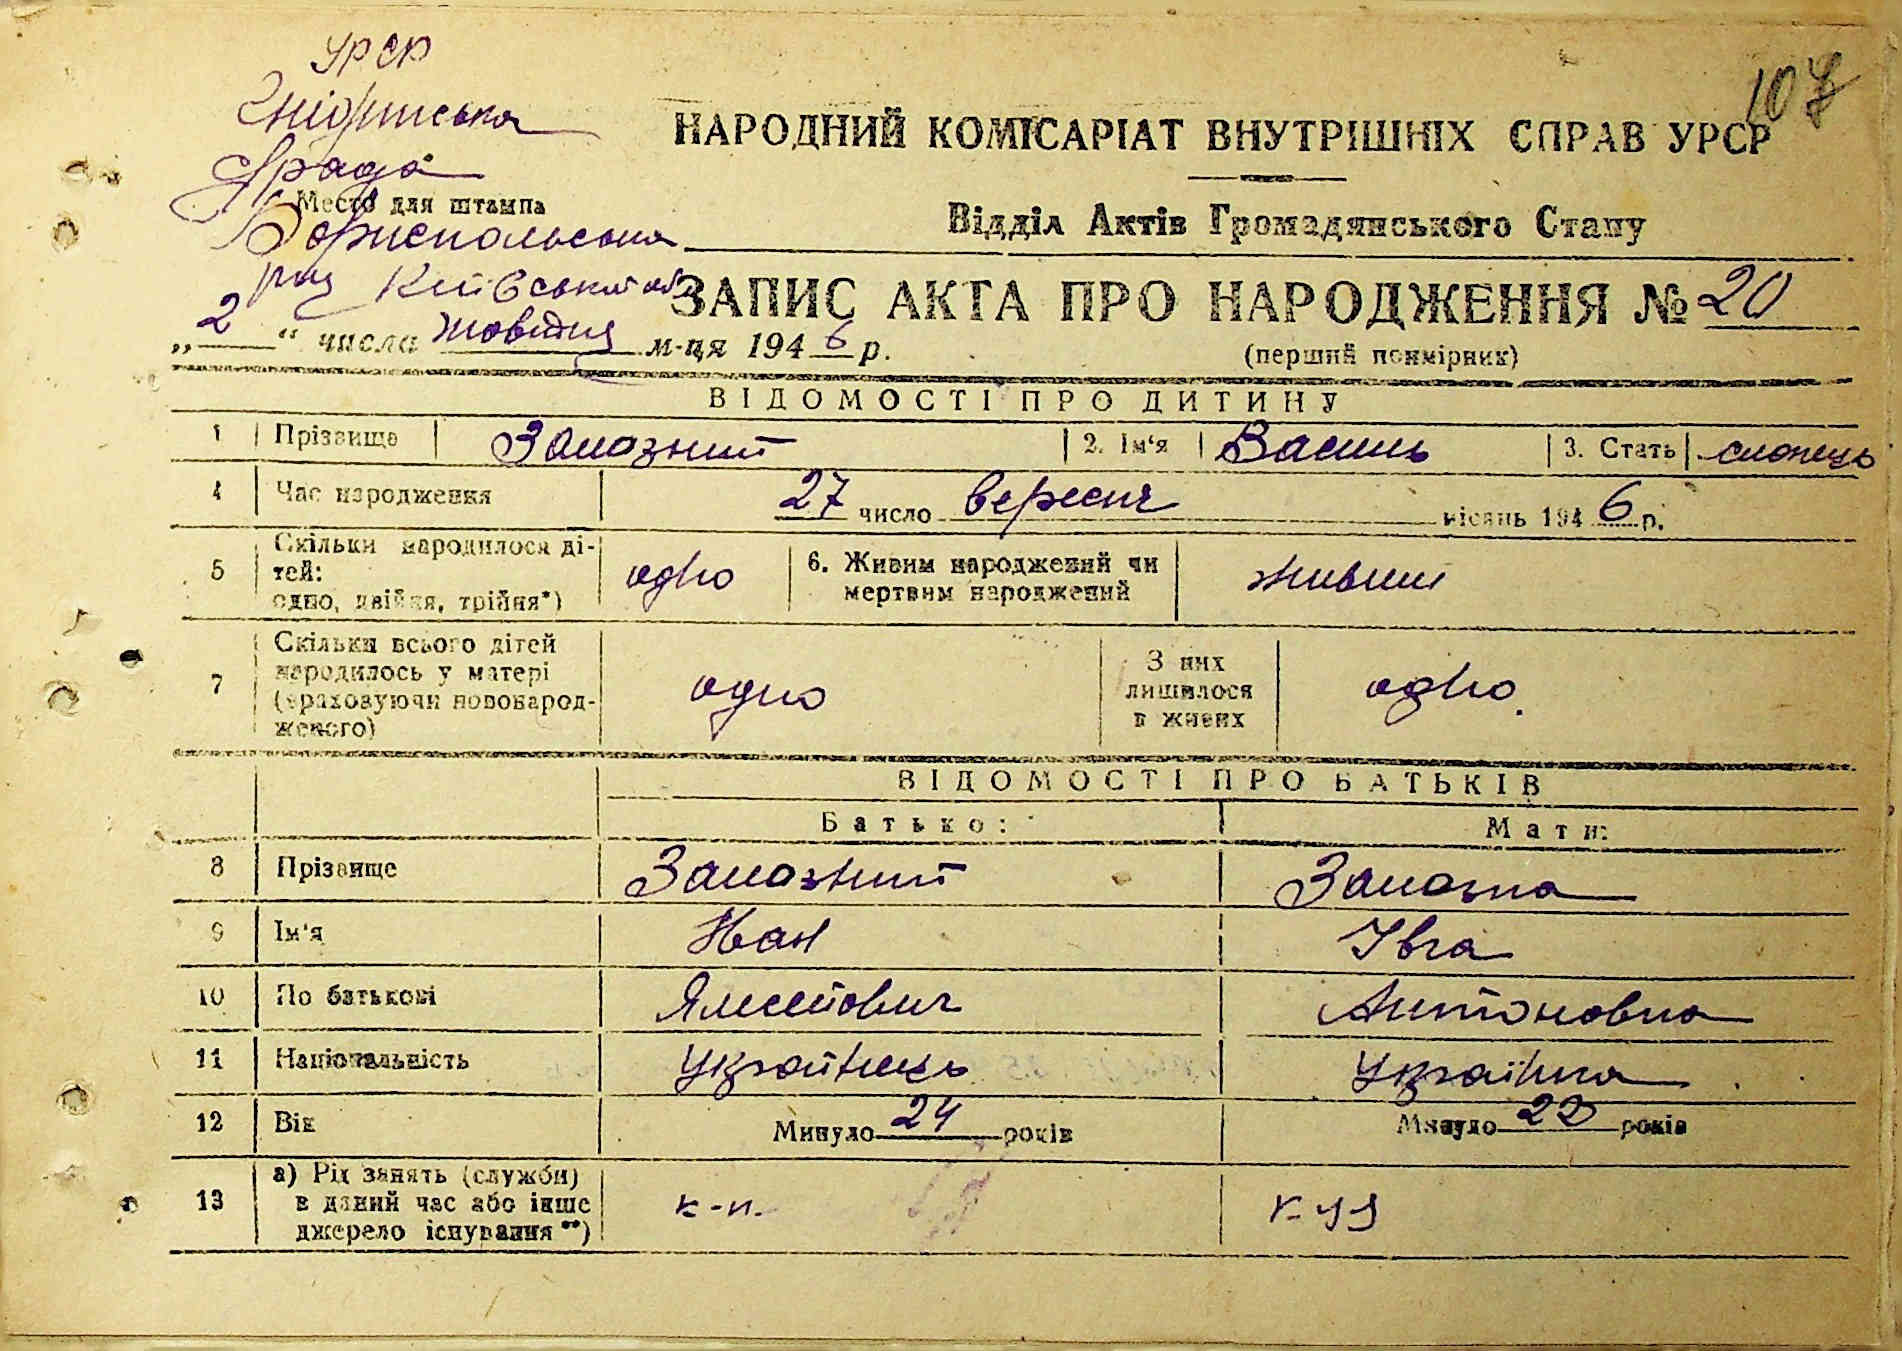 УРСР
107
Гнідинська
НАРОДНИЙ КОМІСАРІАТ ВНУТРІШНІХ СПРАВ УРСР
с/рада
Место для штампа
Бориспольського
Відділ Актів Громадянського Стану
р-ну Київської обл
ЗАПИС АКТА ПРО НАРОДЖЕННЯ № 20
„ 2 “ числа жовтня м-ця 1946 р.
(перший примірник)
ВІДОМОСТІ ПРО ДИТИНУ
1 Прізвище Заможний 2. Ім'я Василь 3. Стать
4 Час народження 27 число вересня місяць 1946 р.
5 Скільки народилося ді-
тей:
одно, двійня, трійня*) одно
6. Живим народжений чи
мертвим народжений живим
7 Скільки всього дітей
народилось у матері
(враховуючи новонарод-
женого) одно
З них
лишилося
в живих одно.
ВІДОМОСТІ ПРО БАТЬКІВ
Батько: Мати:
8 Прізвище Заможний Заможна
9 Ім'я Иван Івга
10 По батькові Антоновна
11 Національність Українець Українка
12 Вік Минуло 24 років Минуло років
13 а) Рід занять (служби)
в даний час або інше
джерело існування **) к-к.